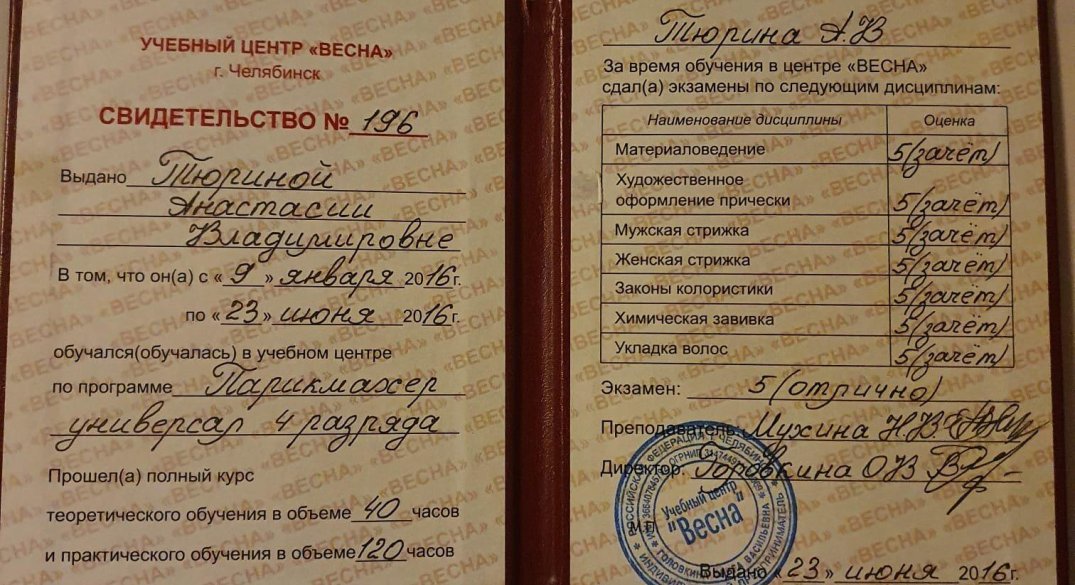 УЧЕБНЫЙ ЦЕНТР «ВЕСНА»
г. Челябинск
СВИДЕТЕЛЬСТВО № 196
Выдано Тюриной
Анастасии
Владимировне
В том, что он(а) с «9» января 2016г.
по «23» июня 2016г.
обучался(обучалась) в учебном центре
по программе Парикмахер
универсал 4 разряда
Прошел(а) полный курс
теоретического обучения в объеме 40 часов
и практического обучения в объеме 120 часов
Тюрина А В
За время обучения в центре «ВЕСНА»
сдал(а) экзамены по следующим дисциплинам:
Наименование дисциплины Оценка
Материаловедение 5(зачёт)
Художественное
оформление прически 5(зачёт)
Мужская стрижка 5(зачёт)
Женская стрижка 5(зачёт)
Законы колористики 5(зачёт)
Химическая завивка 5(зачёт)
Укладка волос 5(зачёт)
Экзамен: 5 (отлично)
Преподаватель: Мухина Н.В.
Директор: Головкина О В
М.П.
Учебный центр
"Весна"
Выдано «23» июня 2016г.